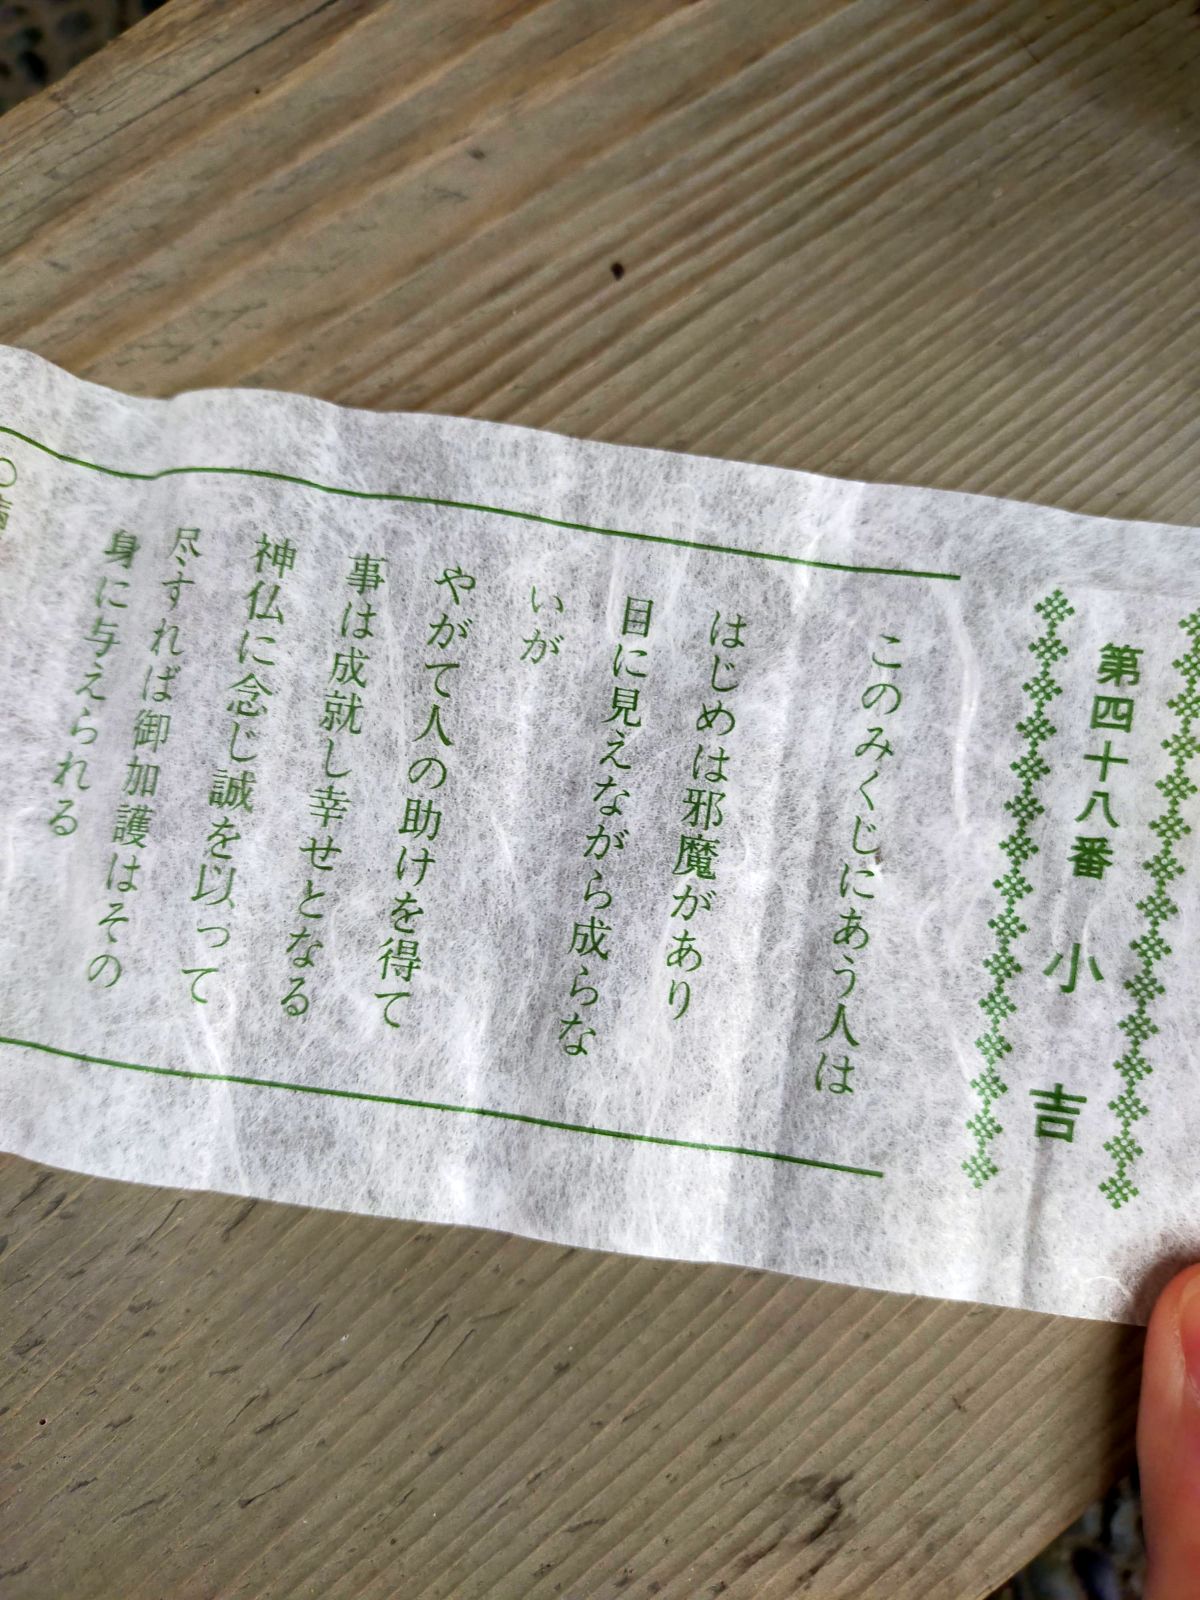 第四十八番 小吉
このみくじにあう人は
はじめは邪魔があり
目に見えながら成らな
いが
やがて人の助けを得て
事は成就し幸せとなる
神仏に念じ誠を以って
尽すれば御加護はその
身に与えられる